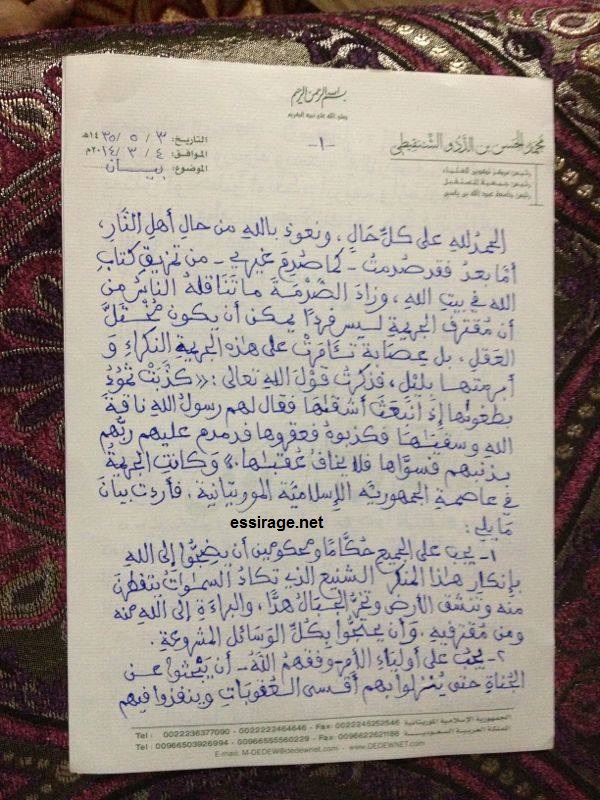 بسم الله الرحمن الرحيم
وصلى الله على نبيه الكريم
محمد الحسن بن الددو الشنقيطي
رئيس مركز تكوين العلماء
رئيس جمعية المستقبل
رئيس جامعة عبد الله بن ياسين
-١-
التاريخ: ٣ / ٥ / ١٤٣٥هـ
الموافق: ٤ / ٣ / ٢٠١٤م
الموضوع: بيان
الحمد لله على كلّ حال، ونعوذ بالله من حال أهل النّار،
أمّا بعد فقد صُدمتُ - كما صُدِم غيري - من تمزيق كتاب
الله في بيت الله، وزاد الصّدمة ما تناقله النّاس من
أن مُقترف الجريمة ليس فردًا يمكن أن يكون مختلَّ
العقل، بل عصابة تآمرتْ على هذه الجريمة النكراء و
أبرمتها بليل، فذكرتُ قول الله تعالى: «كذّبتْ ثمودُ
بطغواها إذ انبعث أشقاها فقال لهم رسولُ الله ناقةَ
الله وسقياها فكذبوه فعقروها فدمدم عليهم ربُّهم
بذنبهم فسوّاها فلا يخافُ عُقباها.» وكانت الجريمةُ
في عاصمة الجمهوريّة الإسلاميّة الموريتانية. فأردت بيانَ
ما يلي:
essirage.net
١- يجب على الجميع حكّامًا ومحكومين أن يضِجّوا إلى الله
بإنكار هذا المنكر الشنيع الذي تكادُ السموات يتفطرن
منه وتنشق الأرض وتخرّ الجبال هدًّا، والبراءة إلى الله منه
ومن مُقترفيه، وأن يحتجّوا بكلّ الوسائل المشروعة.
٢- يجبُ على أولياء الأمر - وفقهمُ اللّهُ - أن يبحثوا عن
الجُناة حتى يُنزلوا بهم أقسى العُقوبات وينفذوا فيهم
الجمهورية الإسلامية الموريتانية Tel : 0022236377090 - 0022222464646 - Fax: 0022245252546
المملكة العربية السعودية Tel : 00966503926994 - 00966555560229 - Fax: 0096622621188
E-mail: M-DEDEW@dedewnet.com - www.DEDEWNET.com